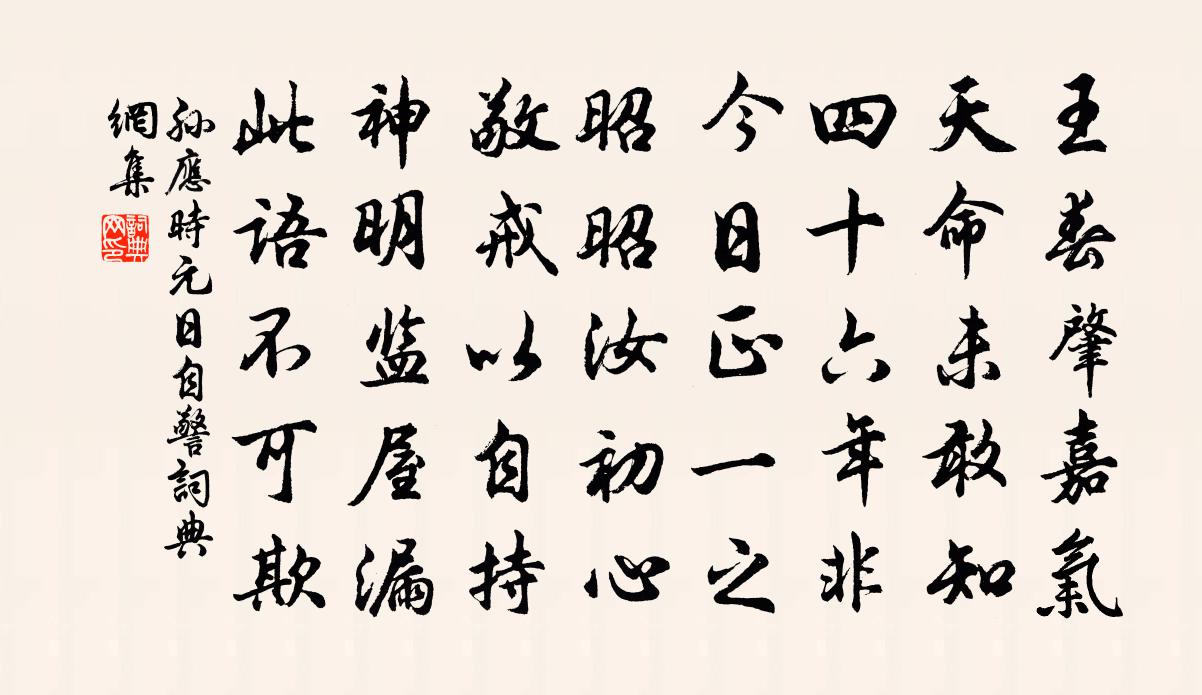 王春肇嘉氣
天命未敢知
四十六年非
今日正一之
昭昭汝初心
敬戒以自持
神明监屋漏
此語不可欺
孫應時元日自警詞典
網集
詞典網印